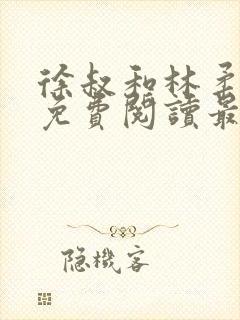 徐叔和林柔
免費閱讀最
隐機客